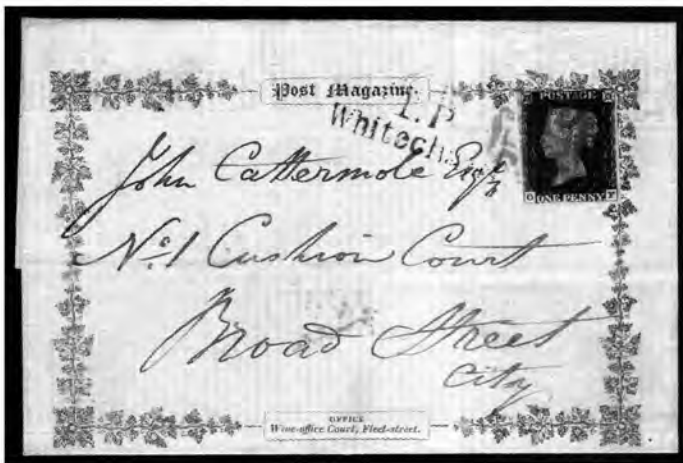 Post Magazine.
T.P
Whitech
POSTAGE
John Cattermole Esqr
No. 1 Cushion Court
Broad Street
City
ONE PENNY
OFFICE
Wine-office Court, Fleet-street.